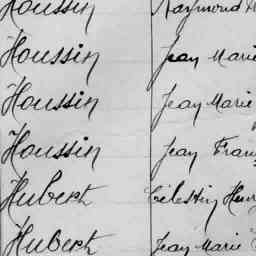 Houssin Raymond
Houssin Jean Marie
Houssin Jean Marie
Houssin Jean Fran
Hubert Célestin Henr
Hubert Jean Marie